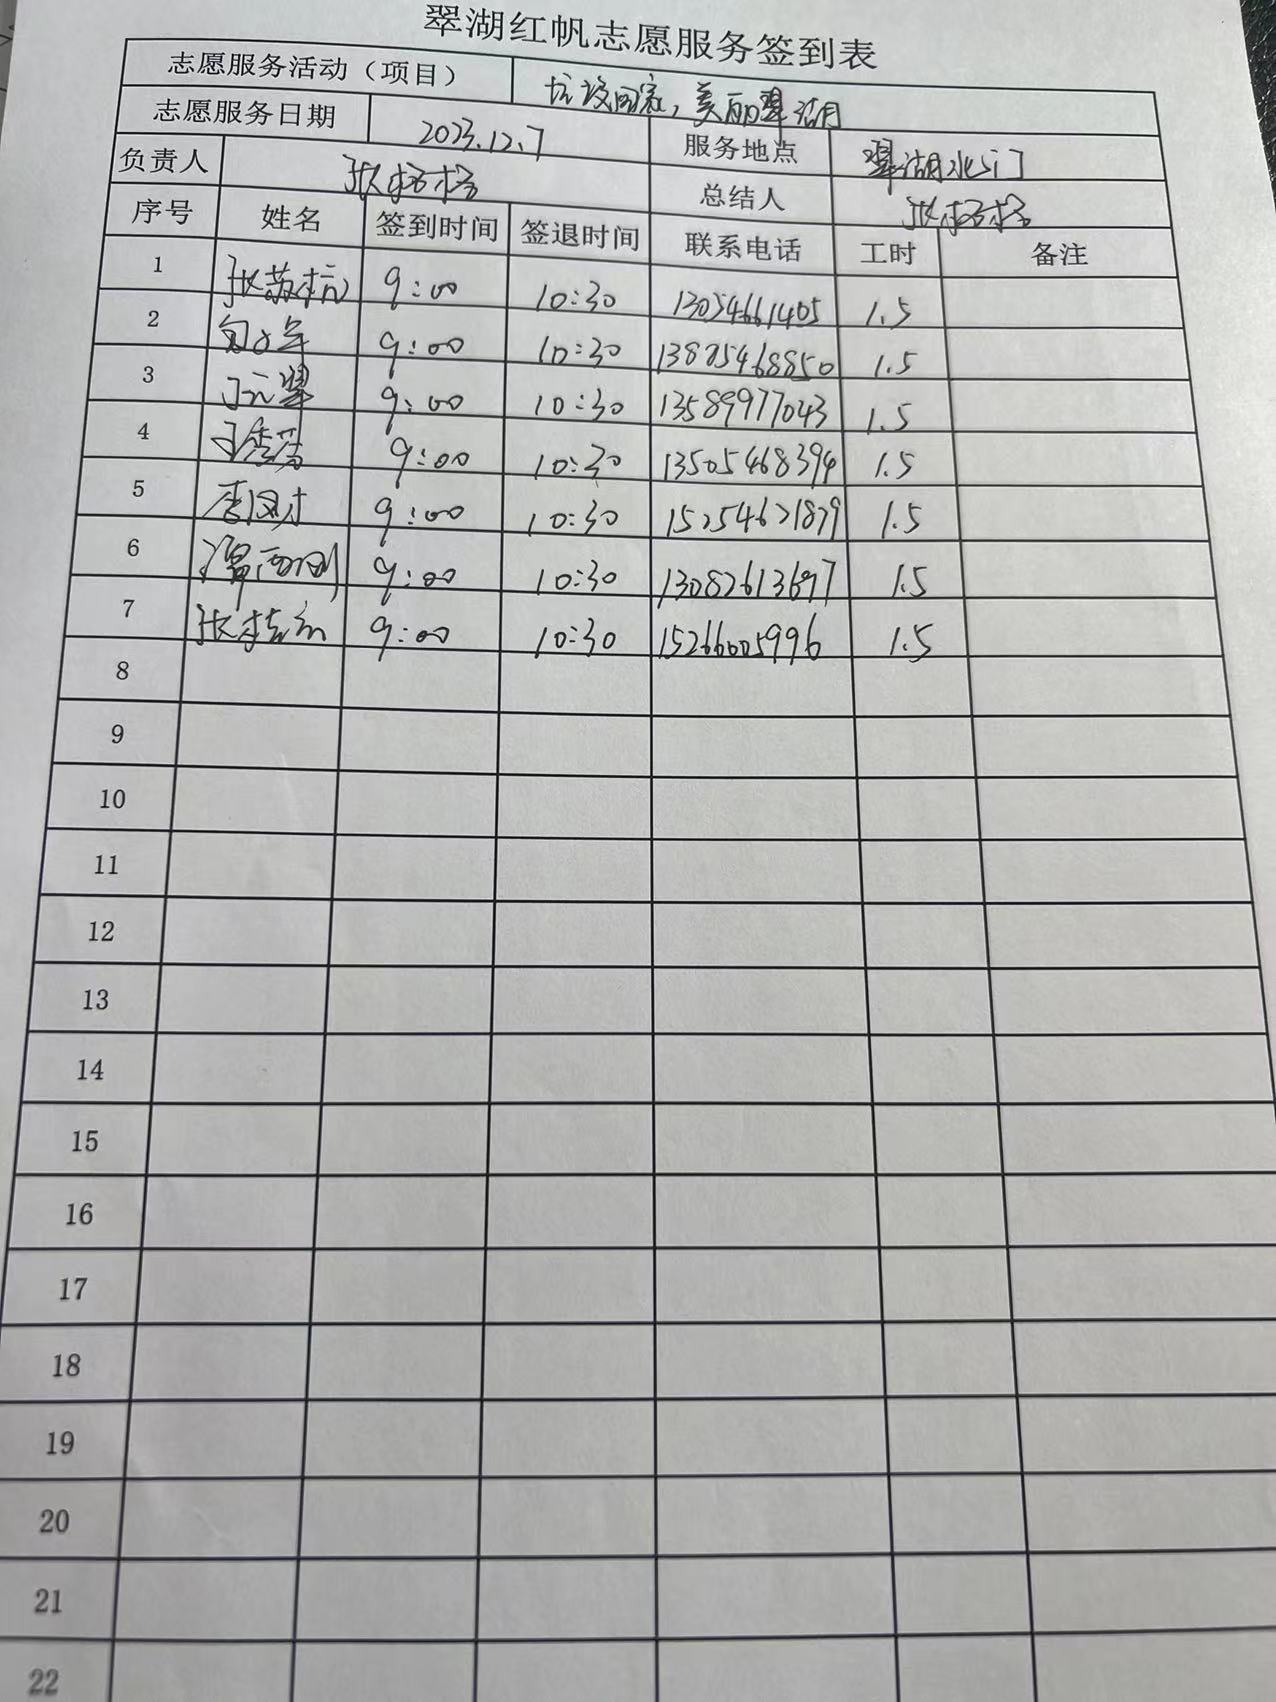 翠湖红帆志愿服务签到表
志愿服务活动（项目） 垃圾回家，美丽翠湖
志愿服务日期 2023.12.7 服务地点 翠湖北门
负责人 张 总结人 张
序号 姓名 签到时间 签退时间 联系电话 工时 备注
1 张苏杭 9:00 10:30 13054661405 1.5
2 9:00 10:30 13825468850 1.5
3 9:00 10:30 13589977043 1.5
4 9:00 10:30 13505468394 1.5
5 9:00 10:30 15254621879 1.5
6 9:00 10:30 13082613697 1.5
7 9:00 10:30 15266005996 1.5
8
9
10
11
12
13
14
15
16
17
18
19
20
21
22